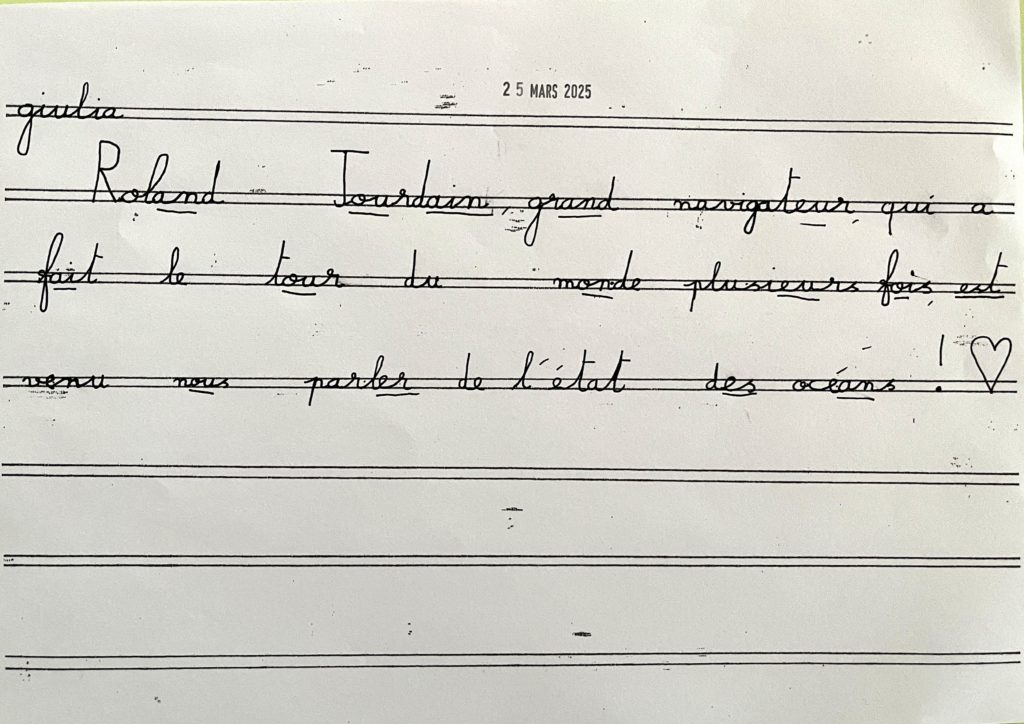 25 MARS 2025
giulia
Roland Jourdain, grand navigateur, qui a
fait le tour du monde plusieurs fois, est
venu nous parler de l'état des océans !♡